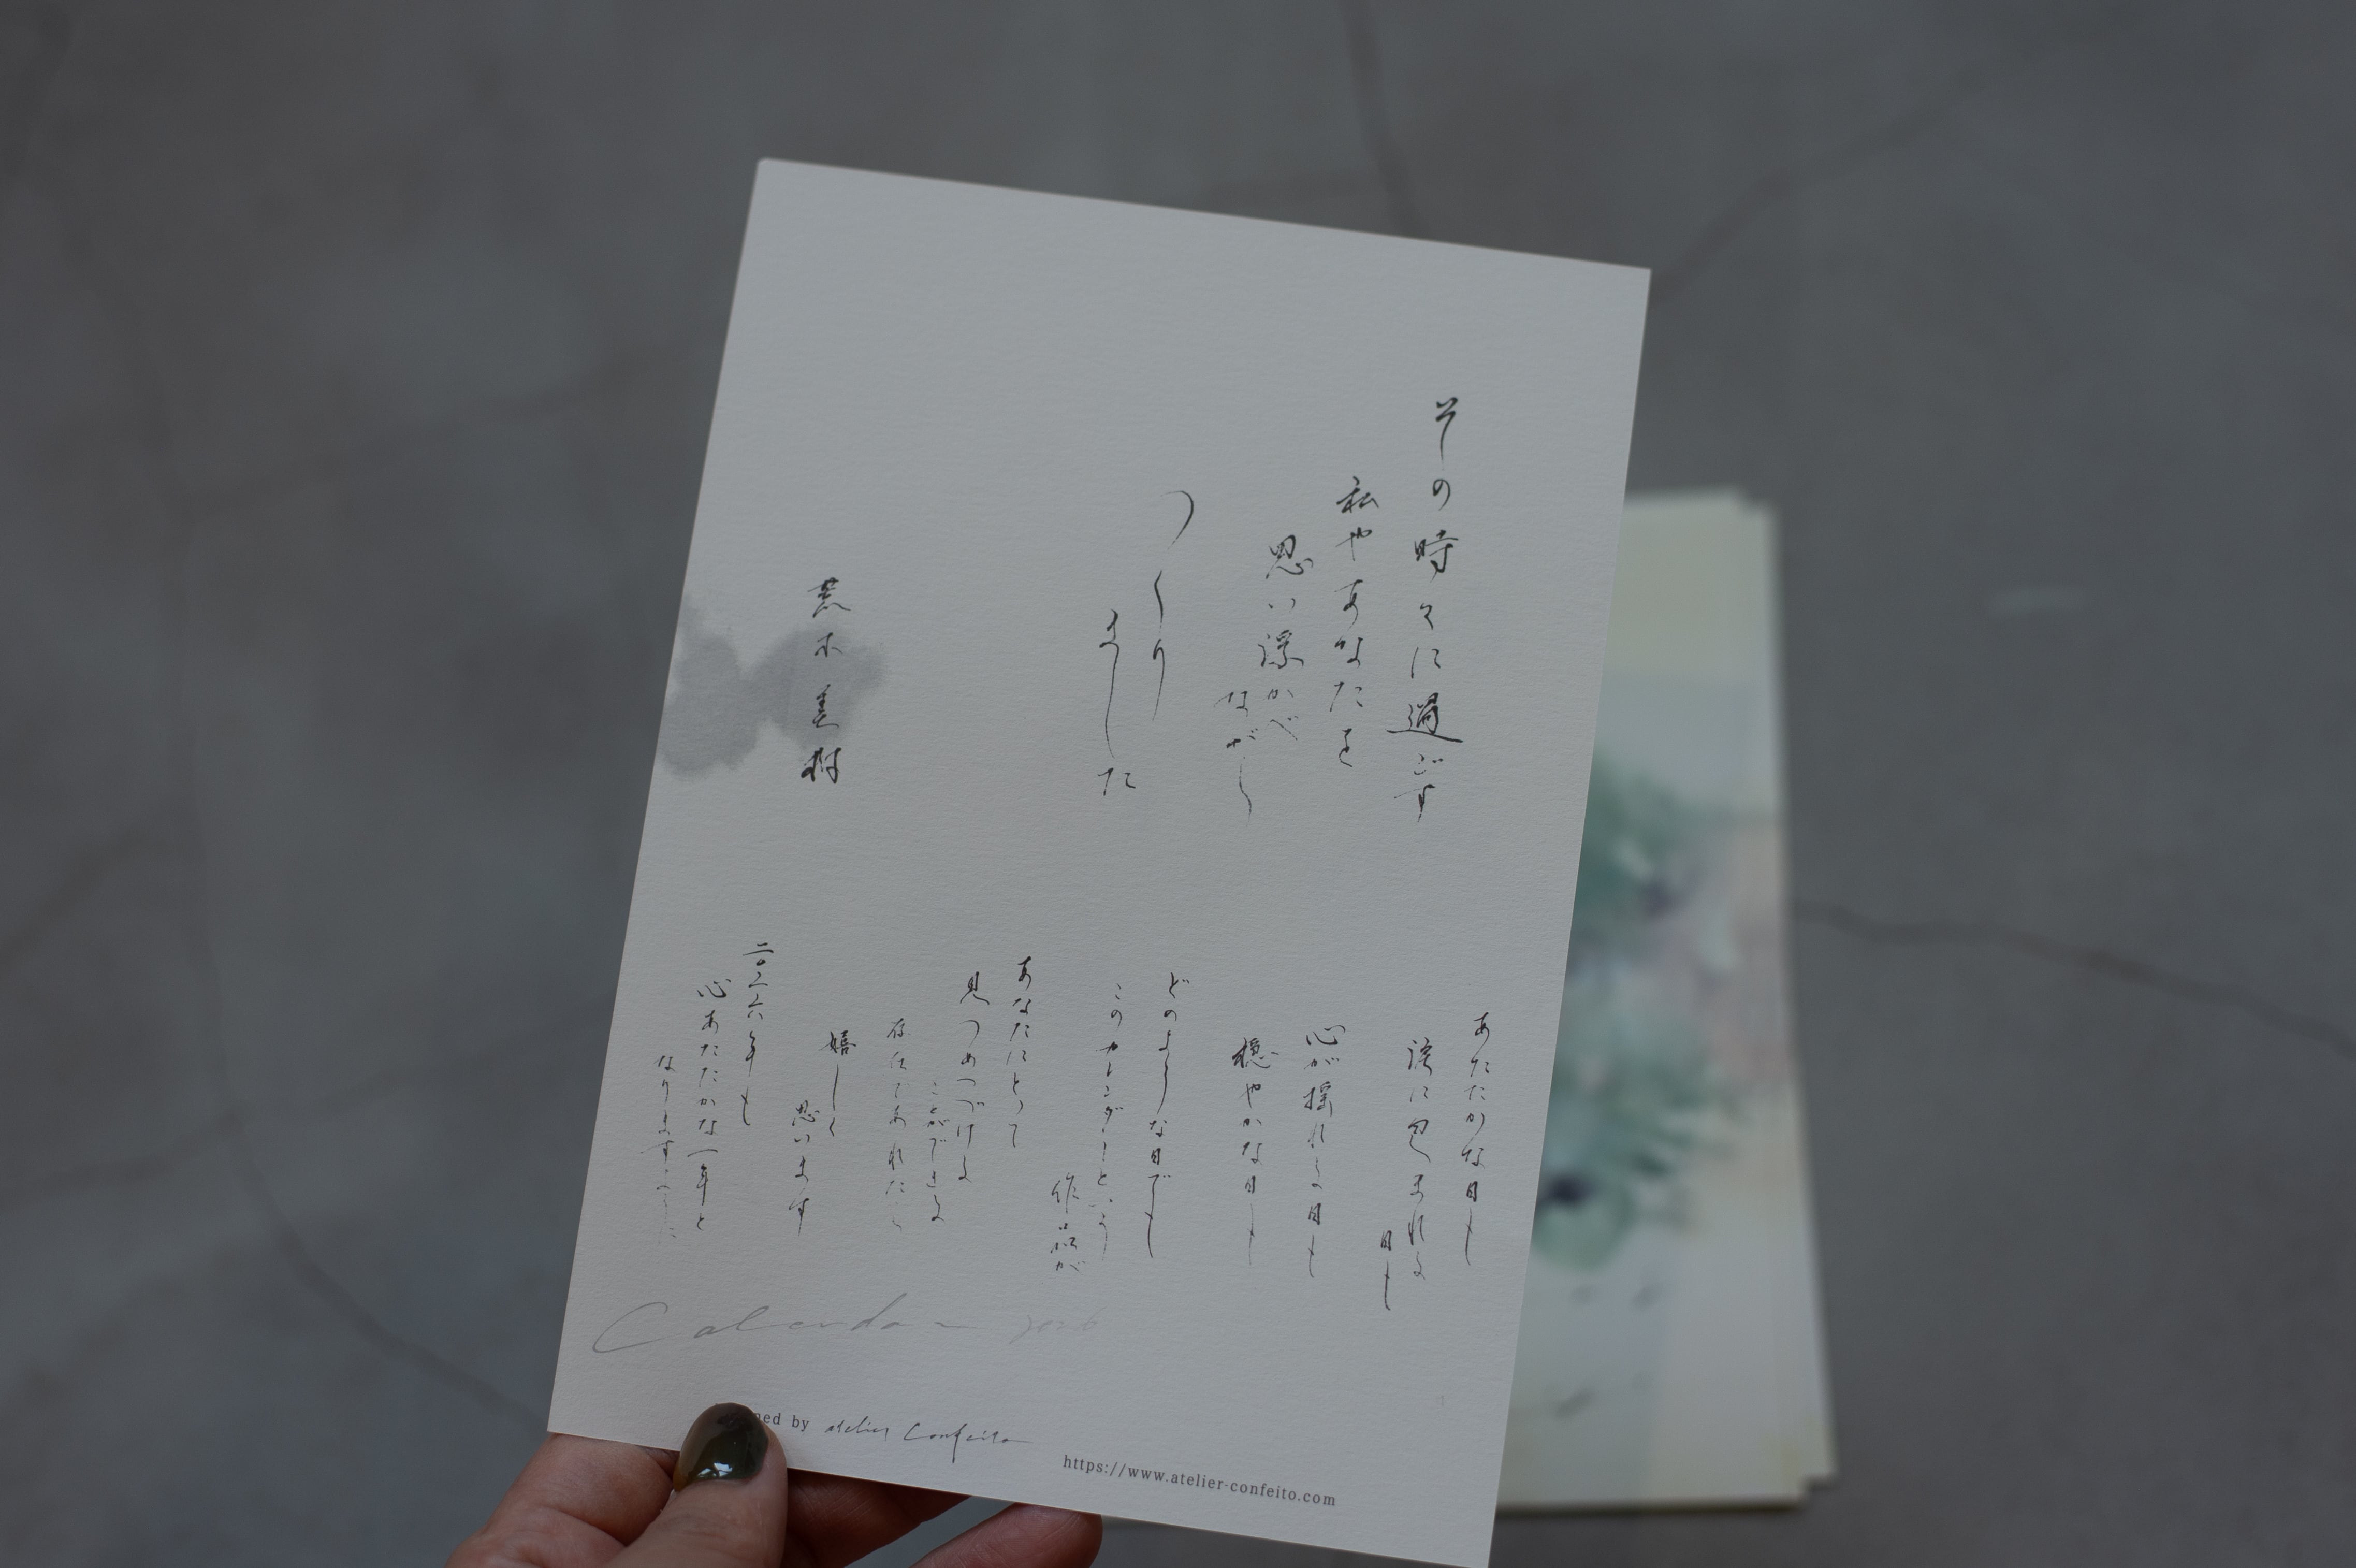 その時々に過ごす
私やあなたを
思い浮かべ
ながら
つくり
ました
荒木美樹
あたたかな日も
涙に包まれる
日も
心が揺れる日も
穏やかな日も
どのような日でも
このカレンダーという
作品が
あなたにとって
見つめつづける
ことができる
存在であれたら
嬉しく
思います
二〇二六年も
心あたたかな一年と
なりますように
Calendar 2026
ned by atelier Confeito
https://www.atelier-confeito.com